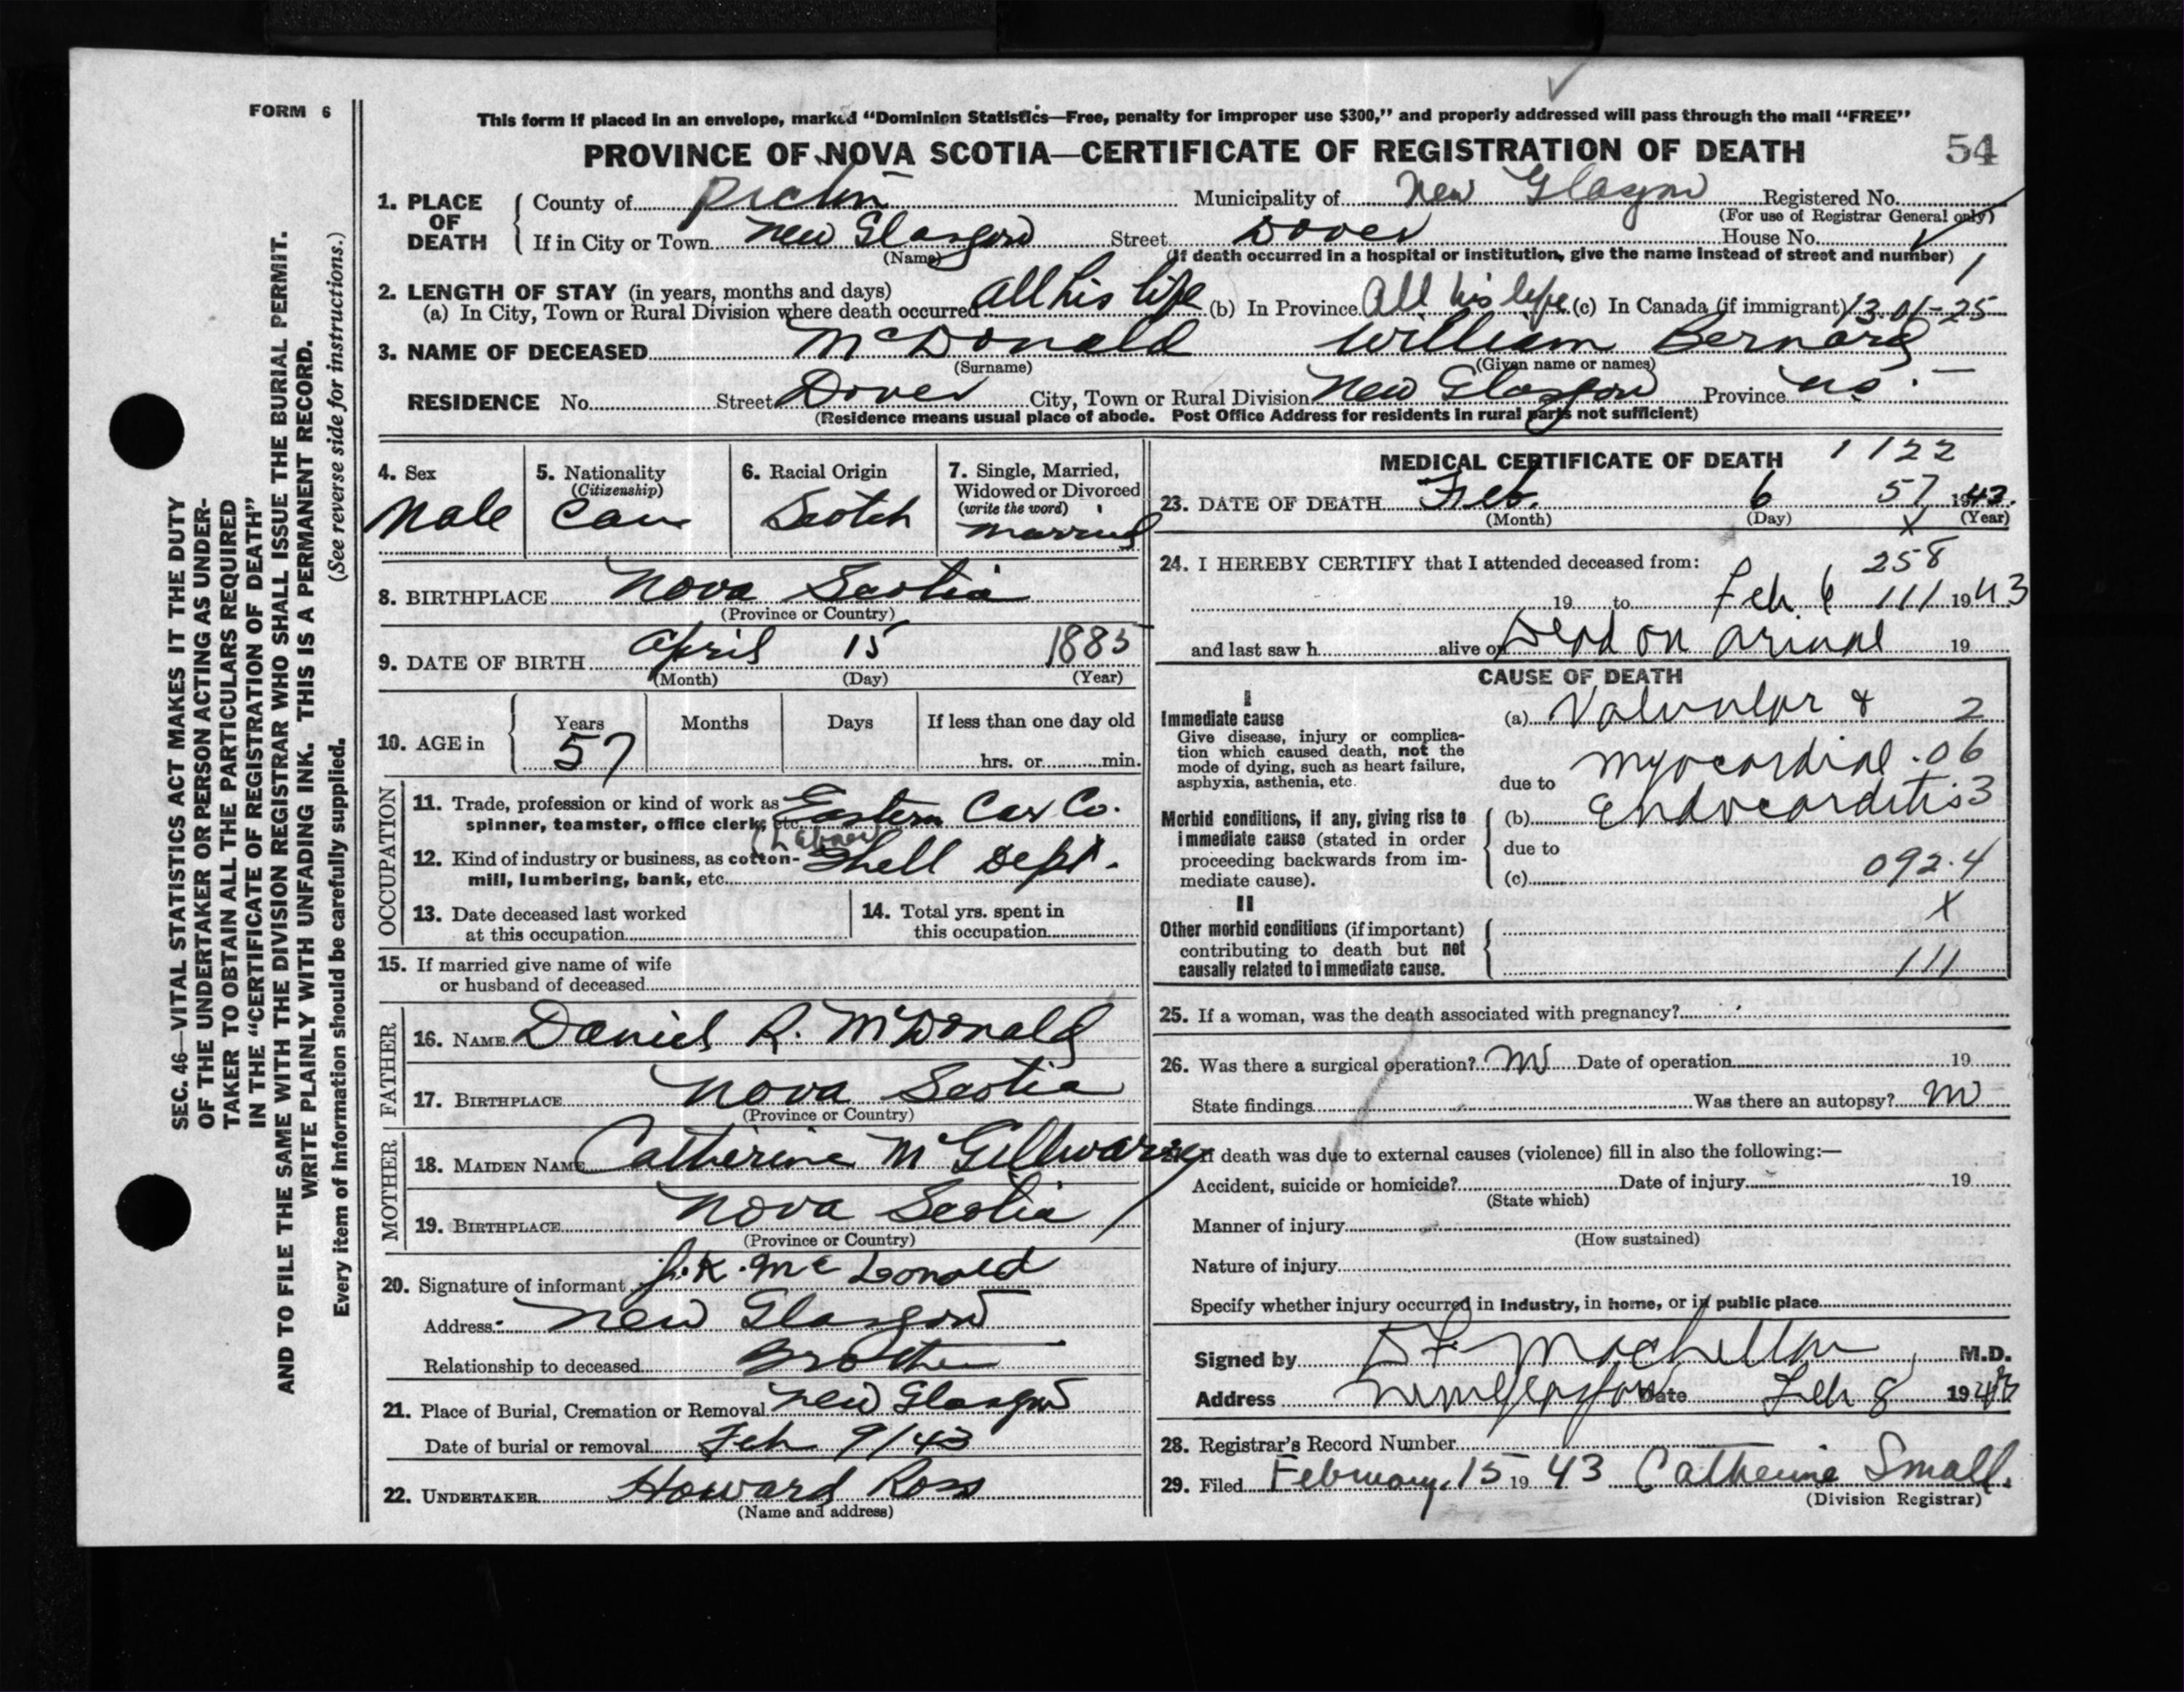 FORM 6
This form if placed in an envelope, marked "Dominion Statistics—Free, penalty for improper use $300," and properly addressed will pass through the mail "FREE"
PROVINCE OF NOVA SCOTIA—CERTIFICATE OF REGISTRATION OF DEATH 54
1. PLACE OF DEATH
County of Pictou Municipality of New Glasgow Registered No.
(For use of Registrar General only)
If in City or Town New Glasgow Street Dover House No.
(Name) (If death occurred in a hospital or institution, give the name instead of street and number) 1
2. LENGTH OF STAY (in years, months and days)
(a) In City, Town or Rural Division where death occurred All his life (b) In Province All his life (c) In Canada (if immigrant) 13-01-25
3. NAME OF DECEASED McDonald William Bernard
(Surname) (Given name or names)
RESIDENCE No. Street Dover City, Town or Rural Division New Glasgow Province N.S.
(Residence means usual place of abode. Post Office Address for residents in rural parts not sufficient)
4. Sex
Male
5. Nationality
(Citizenship)
Can
6. Racial Origin
Scotch
7. Single, Married,
Widowed or Divorced
(write the word)
Married
8. BIRTHPLACE Nova Scotia
(Province or Country)
9. DATE OF BIRTH April 15 1885
(Month) (Day) (Year)
10. AGE in
Years Months Days If less than one day old
57 hrs. or min.
OCCUPATION
11. Trade, profession or kind of work as
spinner, teamster, office clerk, etc. Eastern Car Co.
(Labour)
12. Kind of industry or business, as cotton-
mill, lumbering, bank, etc. Shell Dept.
13. Date deceased last worked
at this occupation
14. Total yrs. spent in
this occupation
15. If married give name of wife
or husband of deceased
FATHER
16. NAME Daniel R. McDonald
17. BIRTHPLACE Nova Scotia
(Province or Country)
MOTHER
18. MAIDEN NAME Catherine McGillivary
19. BIRTHPLACE Nova Scotia
(Province or Country)
20. Signature of informant J.K. McDonald
Address New Glasgow
Relationship to deceased Brother
21. Place of Burial, Cremation or Removal New Glasgow
Date of burial or removal Feb 9/43
22. UNDERTAKER Howard Ross
(Name and address)
MEDICAL CERTIFICATE OF DEATH 1122
23. DATE OF DEATH Feb. 6 57 1943.
(Month) (Day) X (Year)
24. I HEREBY CERTIFY that I attended deceased from: 258
19 to Feb 6 111 1943
and last saw h alive on Dead on arival 19
CAUSE OF DEATH
I
Immediate cause
Give disease, injury or complica-
tion which caused death, not the
mode of dying, such as heart failure,
asphyxia, asthenia, etc.
(a) Valvular & 2
due to Myocardial .06
Morbid conditions, if any, giving rise to
immediate cause (stated in order
proceeding backwards from im-
mediate cause).
(b) Endocarditis 3
due to
(c) 092.4
X
II
Other morbid conditions (if important)
contributing to death but not
causally related to immediate cause. 111
25. If a woman, was the death associated with pregnancy?
26. Was there a surgical operation? No Date of operation 19
State findings Was there an autopsy? no
If death was due to external causes (violence) fill in also the following:—
Accident, suicide or homicide? Date of injury 19
(State which)
Manner of injury
(How sustained)
Nature of injury
Specify whether injury occurred in Industry, in home, or in public place
Signed by M.D.
Address New Glasgow Date Feb 8 1943
28. Registrar's Record Number
29. Filed February, 15 1943 Catherine Small.
(Division Registrar)
SEC. 46—VITAL STATISTICS ACT MAKES IT THE DUTY
OF THE UNDERTAKER OR PERSON ACTING AS UNDER-
TAKER TO OBTAIN ALL THE PARTICULARS REQUIRED
IN THE "CERTIFICATE OF REGISTRATION OF DEATH"
AND TO FILE THE SAME WITH THE DIVISION REGISTRAR WHO SHALL ISSUE THE BURIAL PERMIT.
WRITE PLAINLY WITH UNFADING INK. THIS IS A PERMANENT RECORD.
(See reverse side for instructions.)
Every item of information should be carefully supplied.